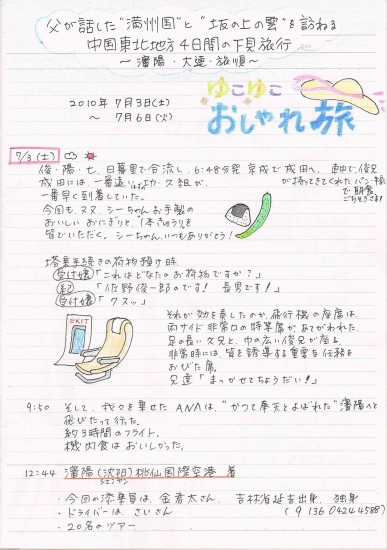 父が話した"満州国"と"坂の上の雲"を訪ねる
中国東北地方4日間の下見旅行
～瀋陽・大連・旅順～
2010年 7月3日(土)
～ 7月6日(火)
ゆこゆこ
おしゃれ旅
7/3 (土)
俊・陽・七、日暮里で合流し、6:48分発 京成で成田へ。車中で、俊兄
が持ってきてくれたパン・桃
で朝食。
ごちそうさま
成田には、一番遠い
組が、
一番早く到着していた。
今回も、ヌヌ、シーちゃんお手製の
おいしい おにぎりと、(1本きゅうり)を
皆でいただく。シーちゃん、いつもありがとう!
搭乗手続きの荷物預け時、
受付嬢「これはどなたのお荷物ですか?」
紀「佐野俊一郎のです! 長男です!」
受付嬢「クスッ」
EXIT
それが効を奏したのか、飛行機の座席は、
両サイド 非常口の特等席が、あてがわれた。
足の長い久兄と、巾の広い俊兄が座る。
非常時には、皆を誘導する重要な任務を
おびた席。
兄達「まっかせてちょうだい!」
9:50 そして、我々を乗せた ANAは、"かつて奉天とよばれた"瀋陽へと
飛びたって行った。
約3時間のフライト。
機内食は おいしかった。
12:44 瀋陽(沈阳)桃仙国際空港 着
シェンヤン
・今回の添乗員は、金君太さん、吉林省延吉出身、独身
・ドライバーは、さいさん (913604244588)
・20名のツアー